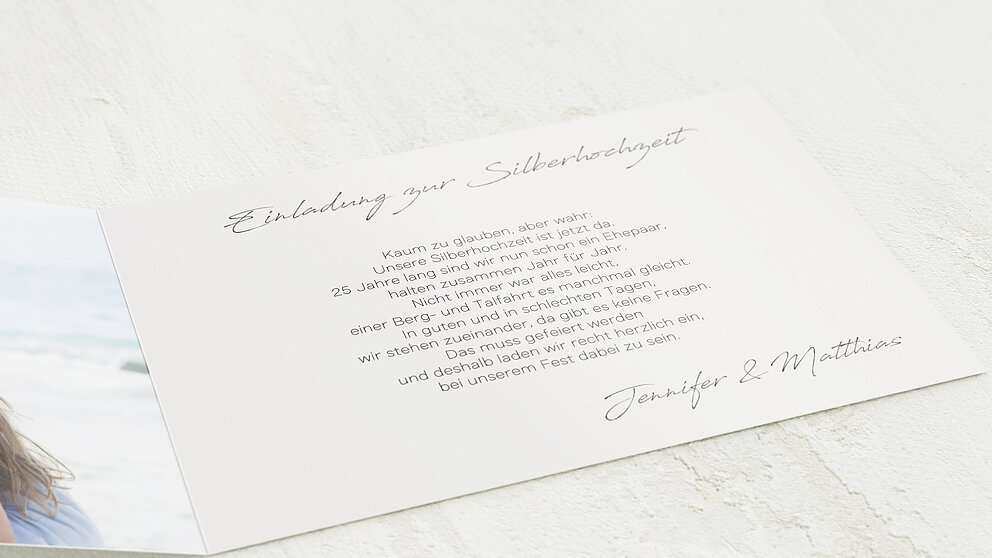 Einladung zur Silberhochzeit
Kaum zu glauben, aber wahr:
Unsere Silberhochzeit ist jetzt da,
25 Jahre lang sind wir nun schon ein Ehepaar,
halten zusammen Jahr für Jahr.
Nicht immer war alles leicht,
einer Berg- und Talfahrt es manchmal gleicht.
In guten und in schlechten Tagen,
wir stehen zueinander, da gibt es keine Fragen.
Das muss gefeiert werden
und deshalb laden wir recht herzlich ein,
bei unserem Fest dabei zu sein.
Jennifer & Matthias